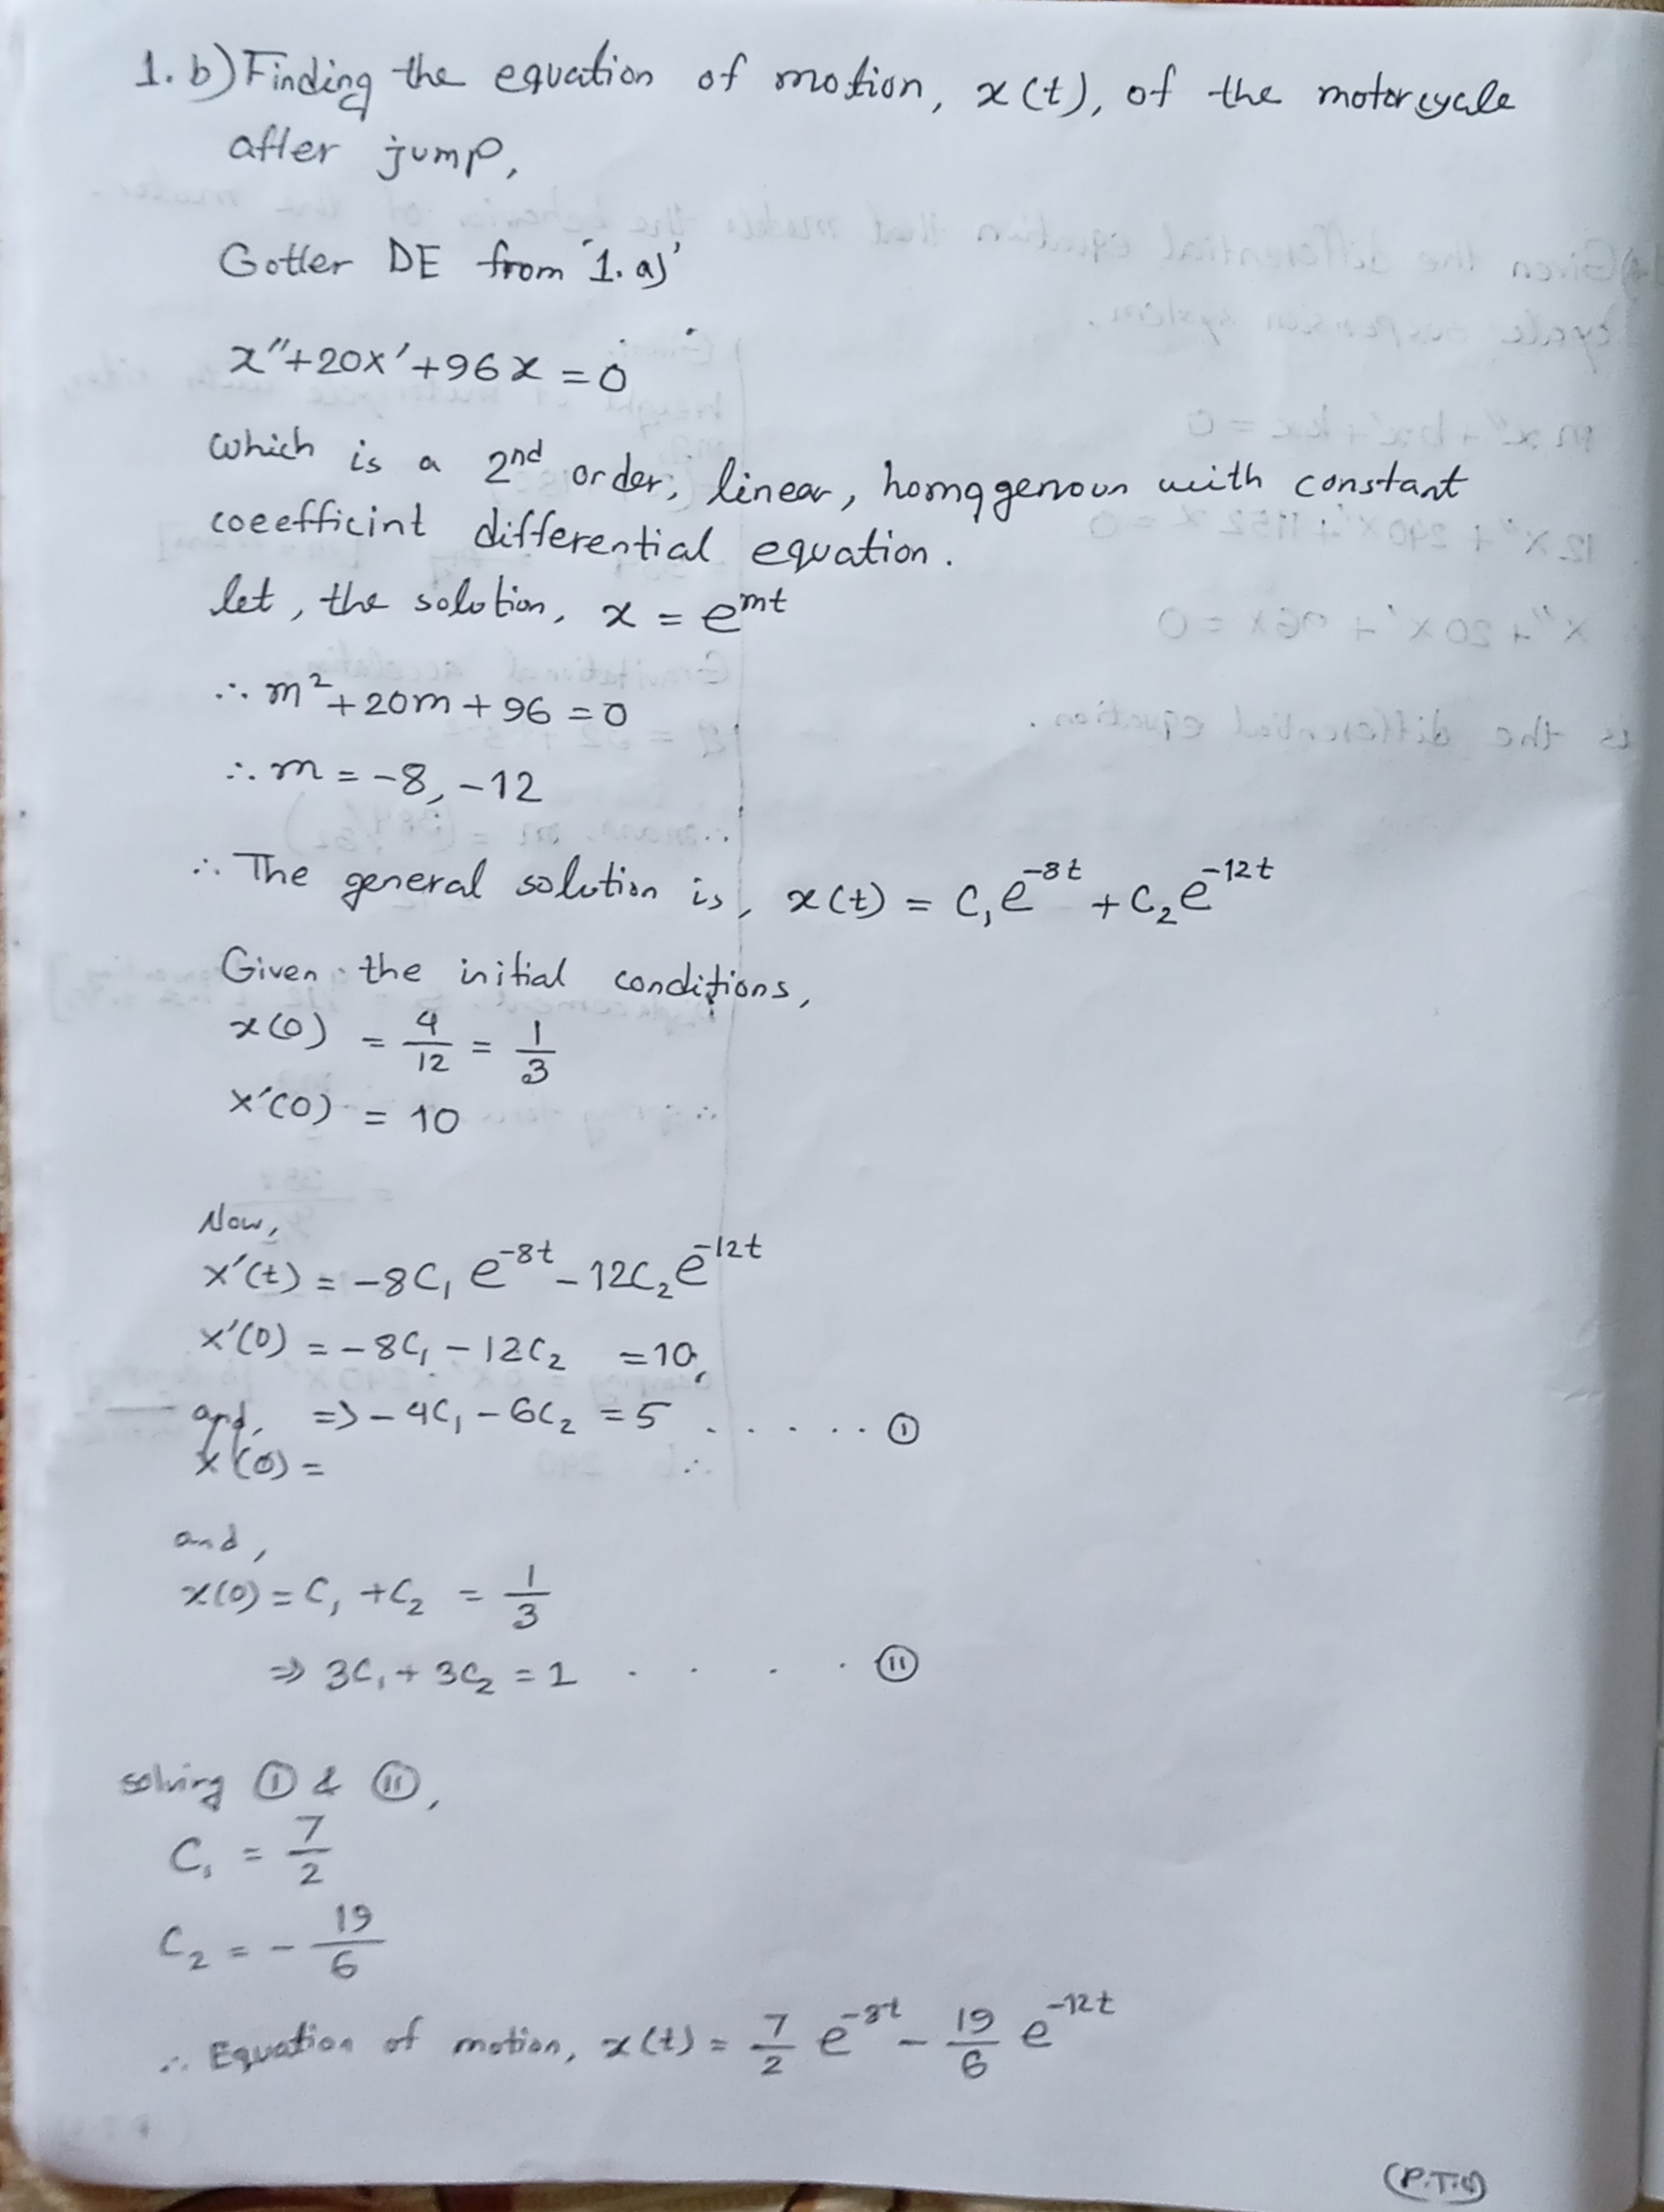 1. b) Finding the equation of motion, x(t), of the motorcycle
after jump,
Gotter DE from '1. a)'
x'' + 20x' + 96x = 0
which is a 2nd order, linear, homggenoun with constant
coeefficint differential equation.
let, the solution, x = e^mt
∴ m² + 20m + 96 = 0
∴ m = -8, -12
∴ The general solution is, x(t) = C₁e^-8t + C₂e^-12t
Given the initial conditions,
x(0) = 4/12 = 1/3
x'(0) = 10
Now,
x'(t) = -8C₁ e^-8t - 12C₂e^-12t
x'(0) = -8C₁ - 12C₂ = 10
and, => -4C₁ - 6C₂ = 5 . . . . . . ①
x(0) =
and,
x(0) = C₁ + C₂ = 1/3
=> 3C₁ + 3C₂ = 1 . . . . ⑪
solving ① & ⑪,
C₁ = 7/2
C₂ = - 19/6
∴ Equation of motion, x(t) = 7/2 e^-8t - 19/6 e^-12t
(P.T.O)